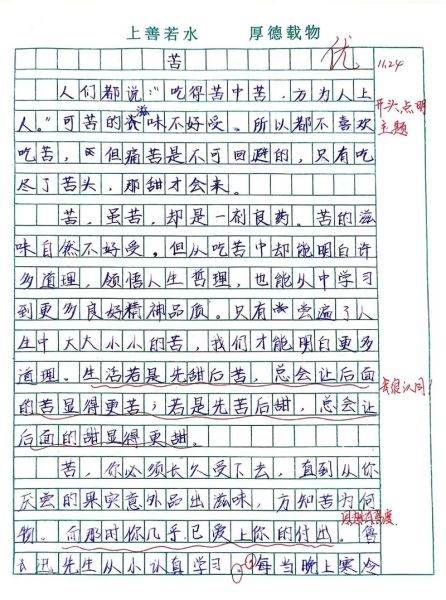 上善若水 厚德载物
苦
优
11.24
人们都说:"吃得苦中苦,方为人上
开头,点明
人。"可苦的滋味不好受。所以都不喜欢
主题
吃苦,但痛苦是不可回避的,只有吃
尽了苦头,那甜才会来。
苦,虽苦,却是一剂良药。苦的滋
味自然不好受。但从吃苦中却能明白许
多道理,领悟人生哲理,也能从中学习
到更多良好精神品质。只有尝遍了人
生中大大小小的苦,我们才能明白更多
道理。生活若是先甜后苦,总会让后面
的苦显得更苦;若是先苦后甜,总会让
我很认同!
后面的甜显得更甜。
苦,你必须长久受下去,直到从你
厌尝的果实意外品出滋味,方知苦为何
物。而那时你几乎已爱上你的付出。鲁
思想有高度
迅先生从小认真学习。每当晚上寒冷